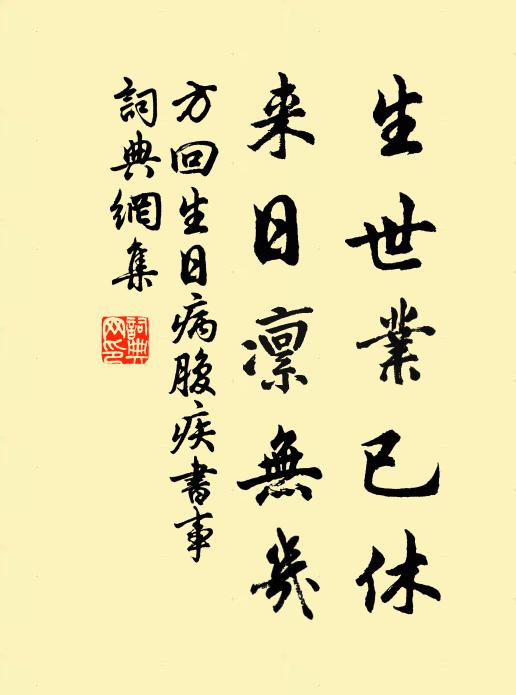 生世業已休
来日凛無幾
方回生日病腹疾書事
詞典網集
詞典网印